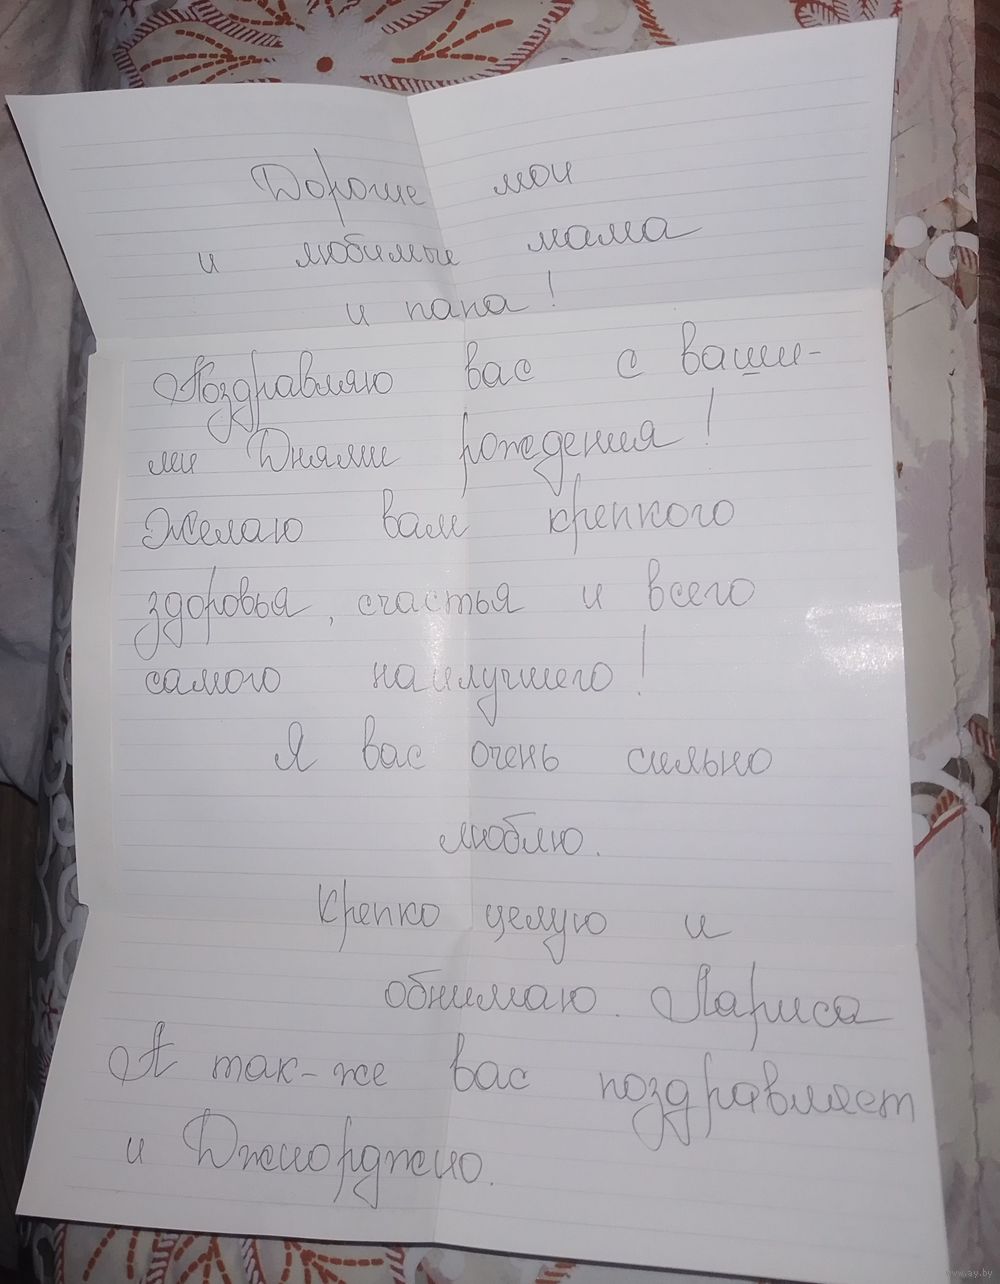 Дорогие мои
и любимые мама
и папа!
Поздравляю вас с ваши-
ми Днями рождения!
Желаю вам крепкого
здоровья, счастья и всего
самого наилучшего!
Я вас очень сильно
люблю.
Крепко целую и
обнимаю. Лариса
А так-же вас поздравляет
и Джиорджио.
www.ay.by